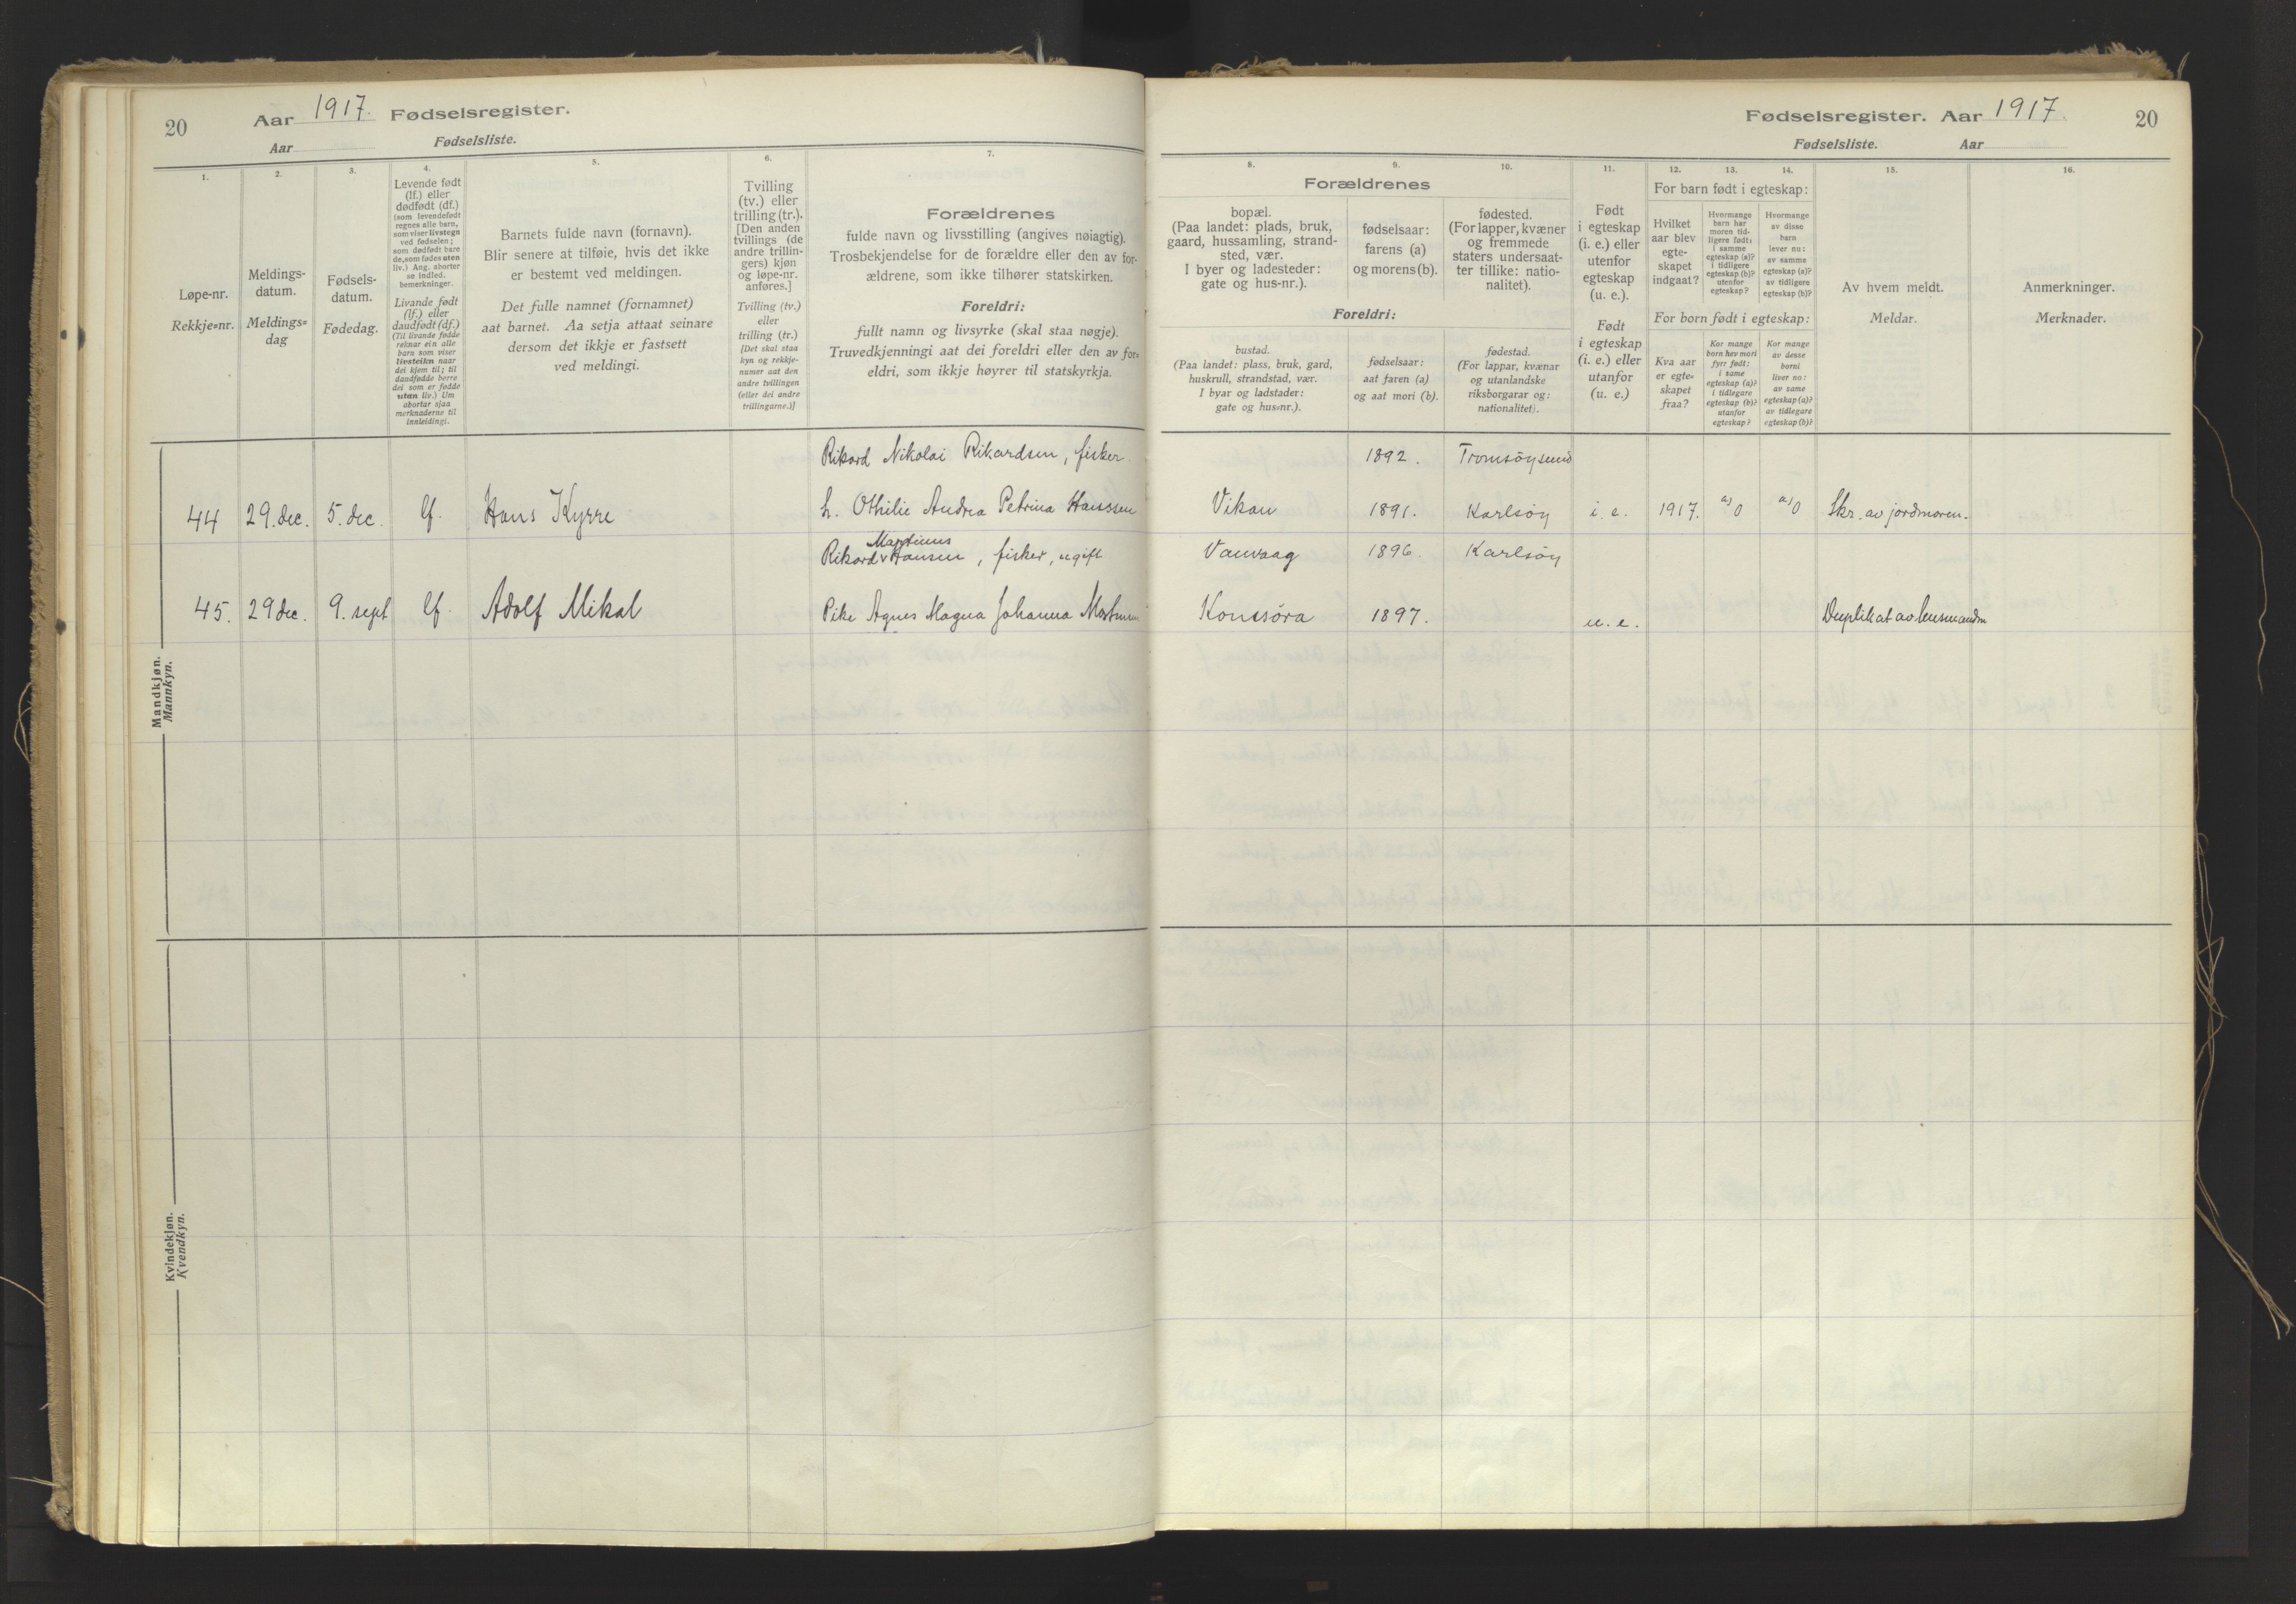 20 Aar 1917. Fødselsregister.
Aar Fødselsliste.
1.
Løpe-nr.
Rekkje=nr.
2.
Meldings-
datum.
Meldings=
dag
3.
Fødsels-
datum.
Fødedag.
4.
Levende født
(lf.) eller
dødfødt (df.)
(som levendefødt
regnes alle barn,
som viser livstegn
ved fødselen;
som dødfødt bare
de, som fødes uten
liv.) Ang. aborter
se indled.
bemerkninger.
Livande født
(lf.) eller
daudfødt (df.)
(Til livande fødde
reknar ein alle
barn som viser
livsteikn naar
dei kjem til; til
daudfødde berre
dei som er fødde
utan liv.) Um
abortar sjaa
merknaderne til
innleidingi.
5.
Barnets fulde navn (fornavn).
Blir senere at tilføie, hvis det ikke
er bestemt ved meldingen.
Det fulle namnet (fornamnet)
aat barnet. Aa setja attaat seinare
dersom det ikkje er fastsett
ved meldingi.
6.
Tvilling
(tv.) eller
trilling (tr.).
[Den anden
tvillings (de
andre trillin-
gers) kjøn
og løpe-nr.
anføres.]
Tvilling (tv.)
eller
trilling (tr.)
[Det skal staa
kyn og rekkje-
numer aat den
andre tvillingen
(eller dei andre
trillingarne.)]
7.
Forældrenes
fulde navn og livsstilling (angives nøiagtig).
Trosbekjendelse for de forældre eller den av for-
ældrene, som ikke tilhører statskirken.
Foreldri:
fullt namn og livsyrke (skal staa nøgje).
Truvedkjenningi aat dei foreldri eller den av for=
eldri, som ikkje høyrer til statskyrkja.
Rikard Nikolai Rikardsen, fisker
44 29. dec. 5. dec. lf. Hans Kyrre h. Othilie Andrea Petrina Hanssen
Martinus
Rikard Hansen, fisker, ugift
45. 29 dec. 9. sept lf. Adolf Mikal Pike Agnes Magna Johanna
Mandkjøn.
Mannkyn.
Kvindekjøn.
Kvendkyn.
Fødselsregister. Aar 1917. 20
Fødselsliste. Aar
8. 9. 10.
Forældrenes
bopæl.
(Paa landet: plads, bruk,
gaard, hussamling, strand-
sted, vær.
I byer og ladesteder:
gate og hus-nr.).
fødselsaar:
farens (a)
og morens (b).
fødested.
(For lapper, kvæner
og fremmede
staters undersaat-
ter tillike: natio-
nalitet).
Foreldri:
bustad.
(Paa landet: plass, bruk, gard,
huskrull, strandstad, vær.
I byar og ladstader:
gate og hus=nr.).
fødselsaar:
aat faren (a)
og aat mori (b).
fødestad.
(For lappar, kvænar
og utanlandske
riksborgarar og:
nationalitet).
11.
Født
i egteskap
(i. e.) eller
utenfor
egteskap
(u. e.).
Født
i egteskap
(i. e.) eller
utanfor
(u. e.)
12. 13. 14.
For barn født i egteskap:
Hvilket
aar blev
egte-
skapet
indgaat?
Hvormange
barn har
moren tid-
ligere født:
i samme
egteskap (a)?
i tidligere
egteskap (b)?
utenfor
egteskap?
Hvormange
av disse
barn
lever nu:
av samme
egteskap (a)?
av tidligere
egteskap (b)?
For born født i egteskap:
Kva aar
er egte-
skapet
fraa?
Kor mange
born hev mori
fyrr født:
i same
egteskap (a)?
i tidlegare
egteskap (b)?
utanfor
egteskap?
Kor mange
av desse
borni
liver no:
av same
egteskap (a)?
av tidlegare
egteskap (b)?
15.
Av hvem meldt.
Meldar.
16.
Anmerkninger.
Merknader.
1892. Tromsøysund
Vikan 1891. Karlsøy i. e. 1917. a) 0 a) 0 Skr. av jordmoren.
Vanvaag 1896. Karlsøy
1897. u. e. Duplikat av lensmanden